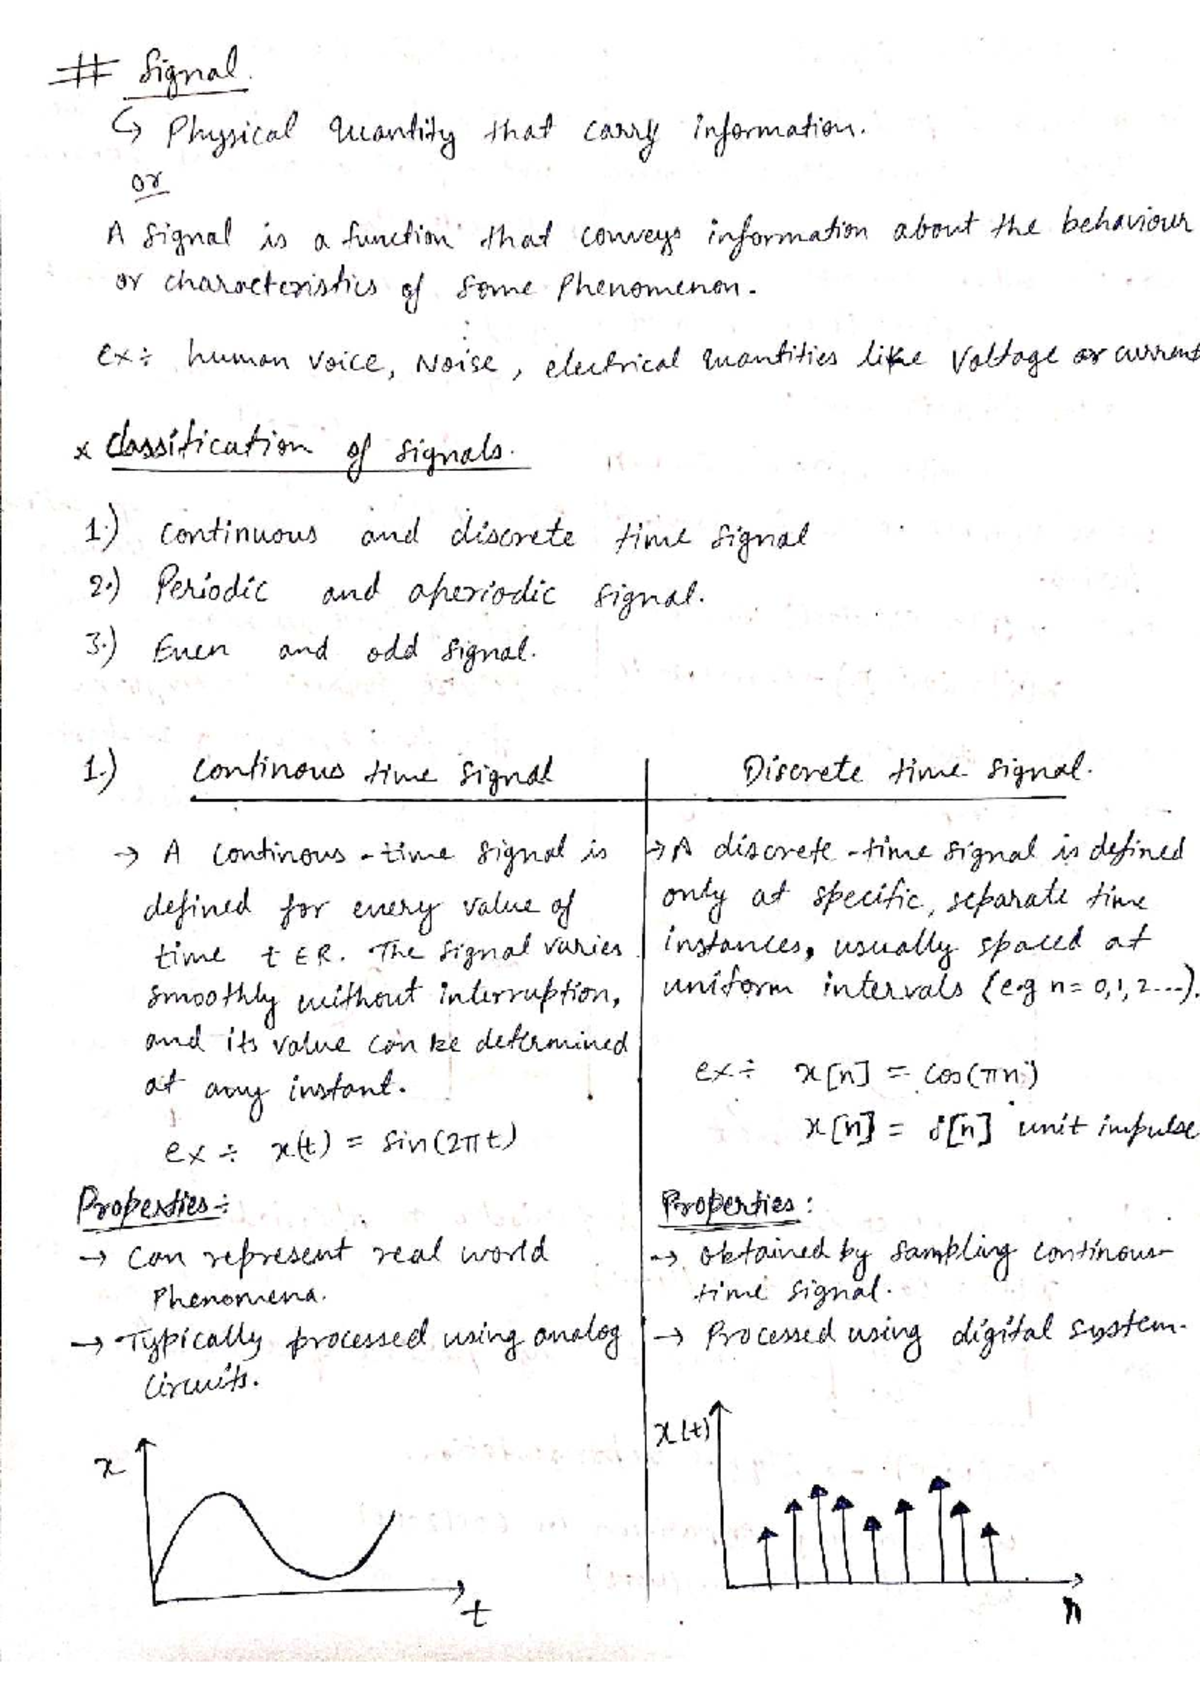 # Signal.
↳ Physical Quantity that carry information.
or
A signal is a function that conveys information about the behaviour
or characteristics of some phenomenon.
ex÷ human voice, Noise, electrical quantities like Voltage or current
x Classification of signals.
1.) Continuous and discrete time signal
2.) Periodic and aperiodic signal.
3.) Even and odd signal.
1.) Continous time signal
→ A continous-time signal is
defined for every value of
time t ∈ R. The signal varies
smoothly without interruption,
and its value can be determined
at any instant.
ex ÷ x(t) = sin(2πt)
Properties÷
→ Can represent real world
Phenomena.
→ Typically processed using analog
circuits.
x
t
Discrete time signal.
→ A discrete-time signal is defined
only at specific, separate time
instances, usually spaced at
uniform intervals (e.g n= 0,1,2...).
ex÷ x[n] = cos(πn)
x[n] = δ[n] unit impulse
Properties:
→ obtained by sampling continous-
time signal.
→ Processed using digital system.
x(t)
n